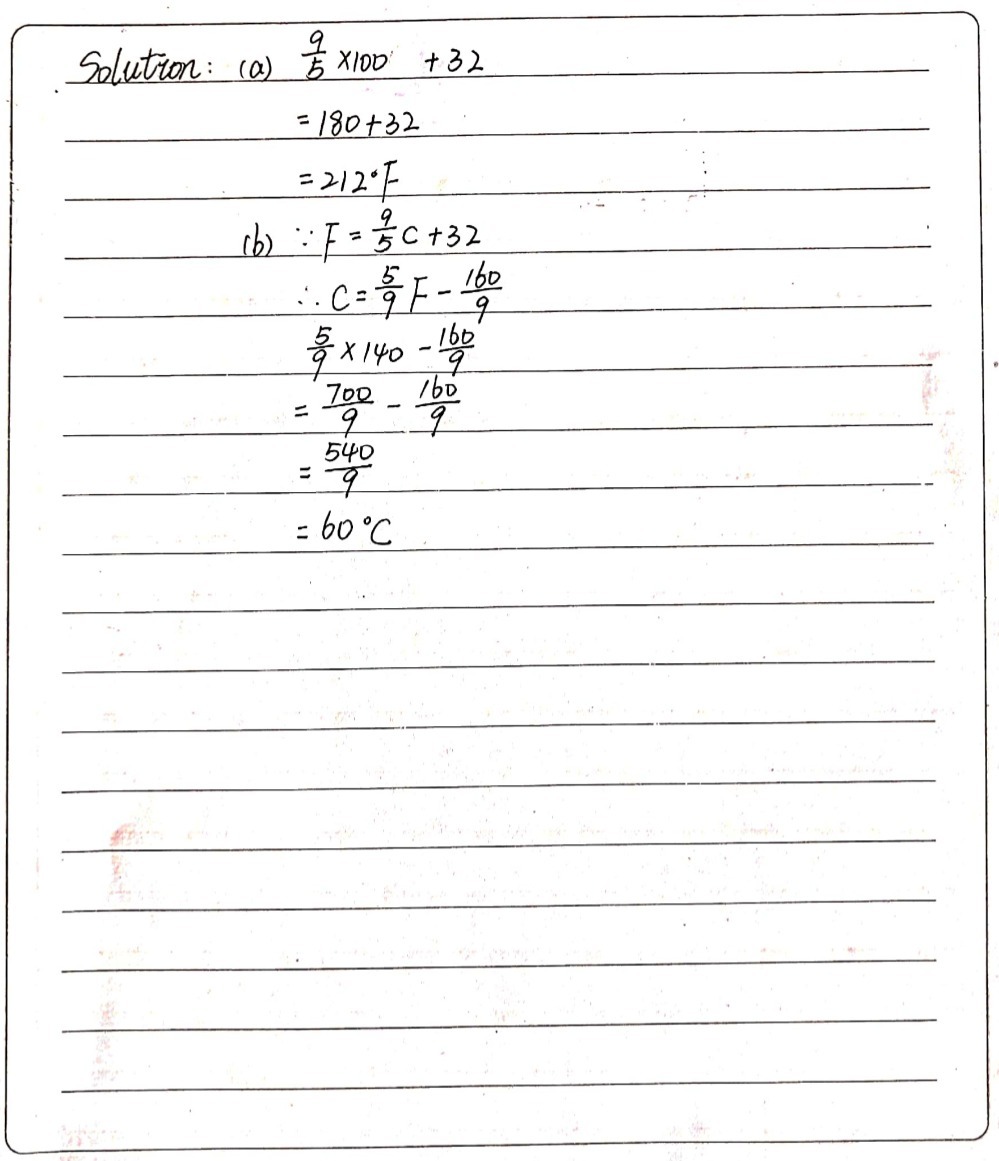 Solution: (a) 9/5 ×100 +32
=180+32
=212°F
(b) ∵ F = 9/5 C +32
∴ C = 5/9 F - 160/9
5/9 × 140 - 160/9
= 700/9 - 160/9
= 540/9
= 60 °C